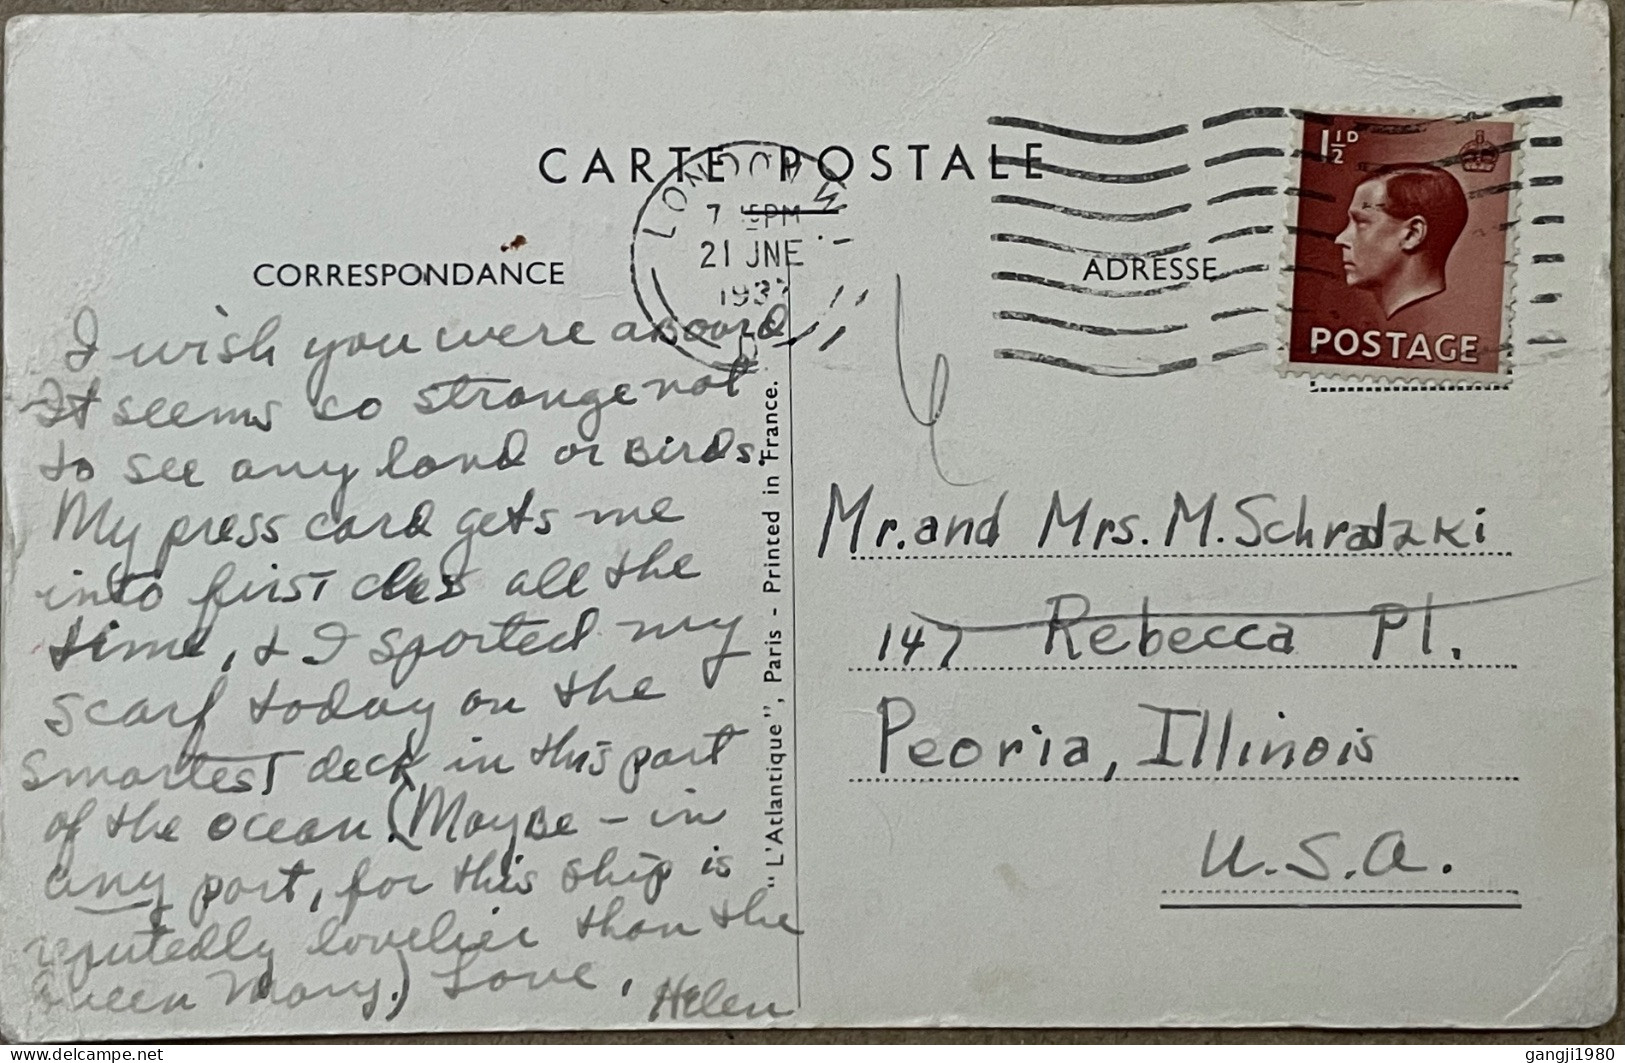 CARTE POSTALE
LONDON W
7 15PM
21 JNE
1937
1½D
POSTAGE
CORRESPONDANCE
ADRESSE
I wish you were aboard
It seems so strange not
to see any land or birds.
My press card gets me
into first class all the
time, & I sported my
scarf today on the
smartest deck in this part
of the ocean. (Maybe - in
any part, for this ship is
reputedly lovelier than the
Queen Mary.) Love,
Helen
"L'Atlantique", Paris - Printed in France.
Mr. and Mrs. M. Schradzki
147 Rebecca Pl.
Peoria, Illinois
U.S.A.
delcampe.net
gangji1980